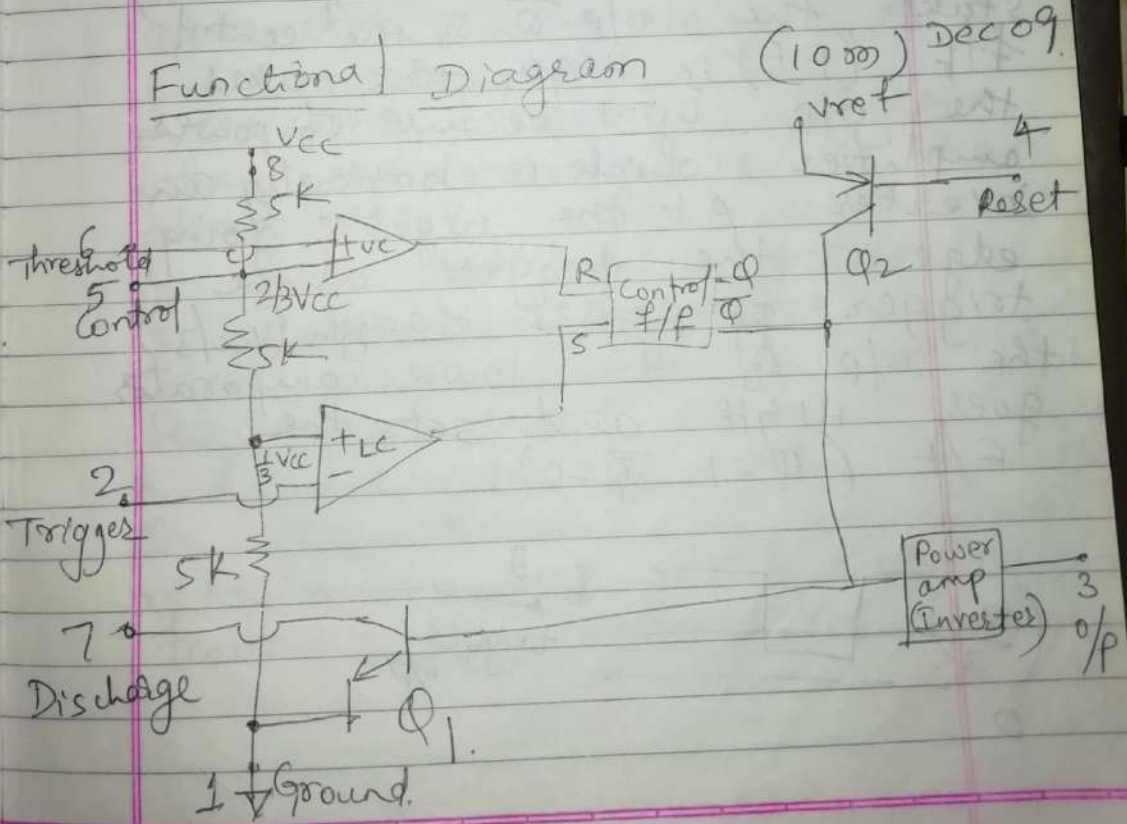 Functional Diagram (10m) Dec 09
Vref
4
Reset
Q2
VCC
8
5K
6
Threshold
5
Control
+ UC
-
2/3VCC
R
S
Control
f/f
Q
Q̅
5K
+ LC
-
1/3 VCC
2
Trigger
5K
Power
amp
(Inverter)
3
O/P
7
Discharge
Q1.
1 Ground.